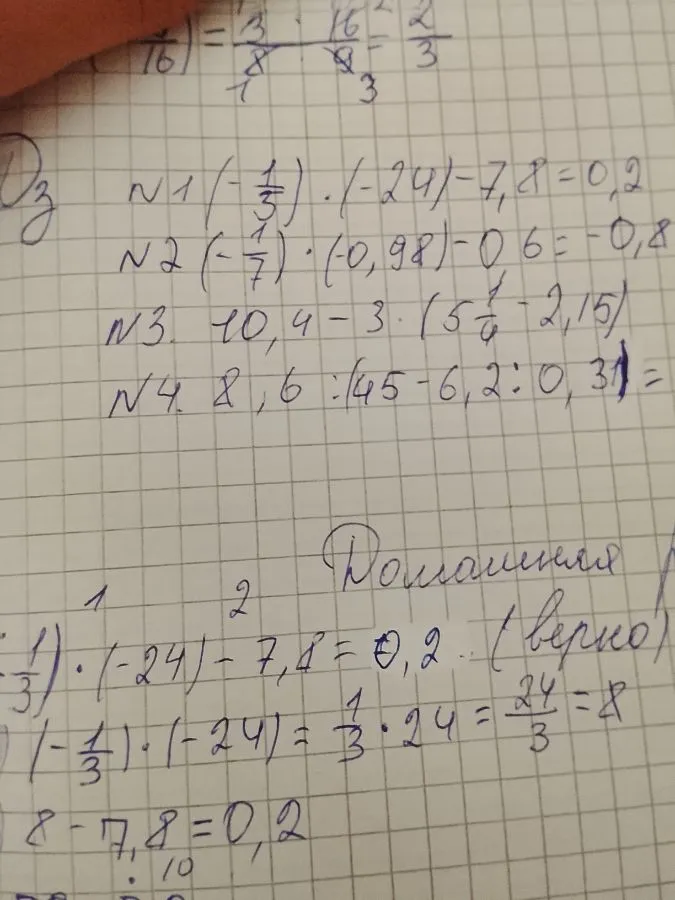 16) = 3/8 · 16/9 = 2/3
1 3
Дз №1 (-1/3) · (-24) - 7,8 = 0,2
№2 (-1/7) · (-0,98) - 0 6 = -0,8
№3. 10,4 - 3 · (5 1/4 - 2,15)
№4. 8,6 : (45 - 6,2 : 0,31) =
Домашняя
1 2
1/3) · (-24) - 7,8 = 0,2. (верно)
(-1/3) · (-24) = 1/3 · 24 = 24/3 = 8
8 - 7,8 = 0,2
· 10